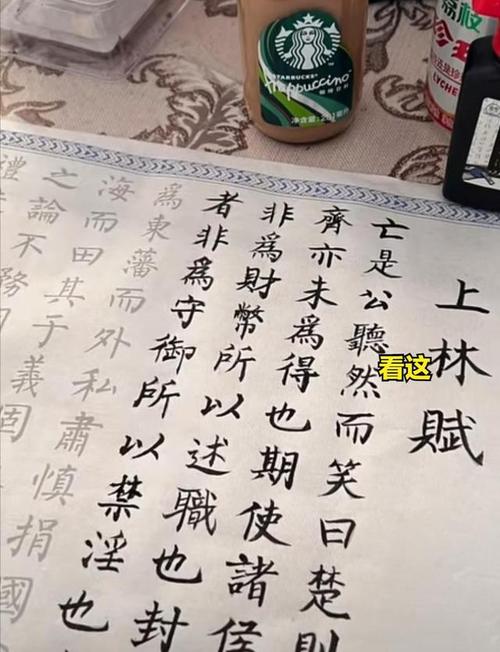 上林賦
亡是公聽然而笑曰楚則
齊亦未爲得也期使諸侯
非爲財幣所以述職也封
者非爲守御所以禁淫也
爲東藩而外私肅慎捐國
海而田其于義固
之論不務
禮
看这
STARBUCKS
Frappuccino
咖啡饮料
净含量:281毫升
荔枝
LYCHE